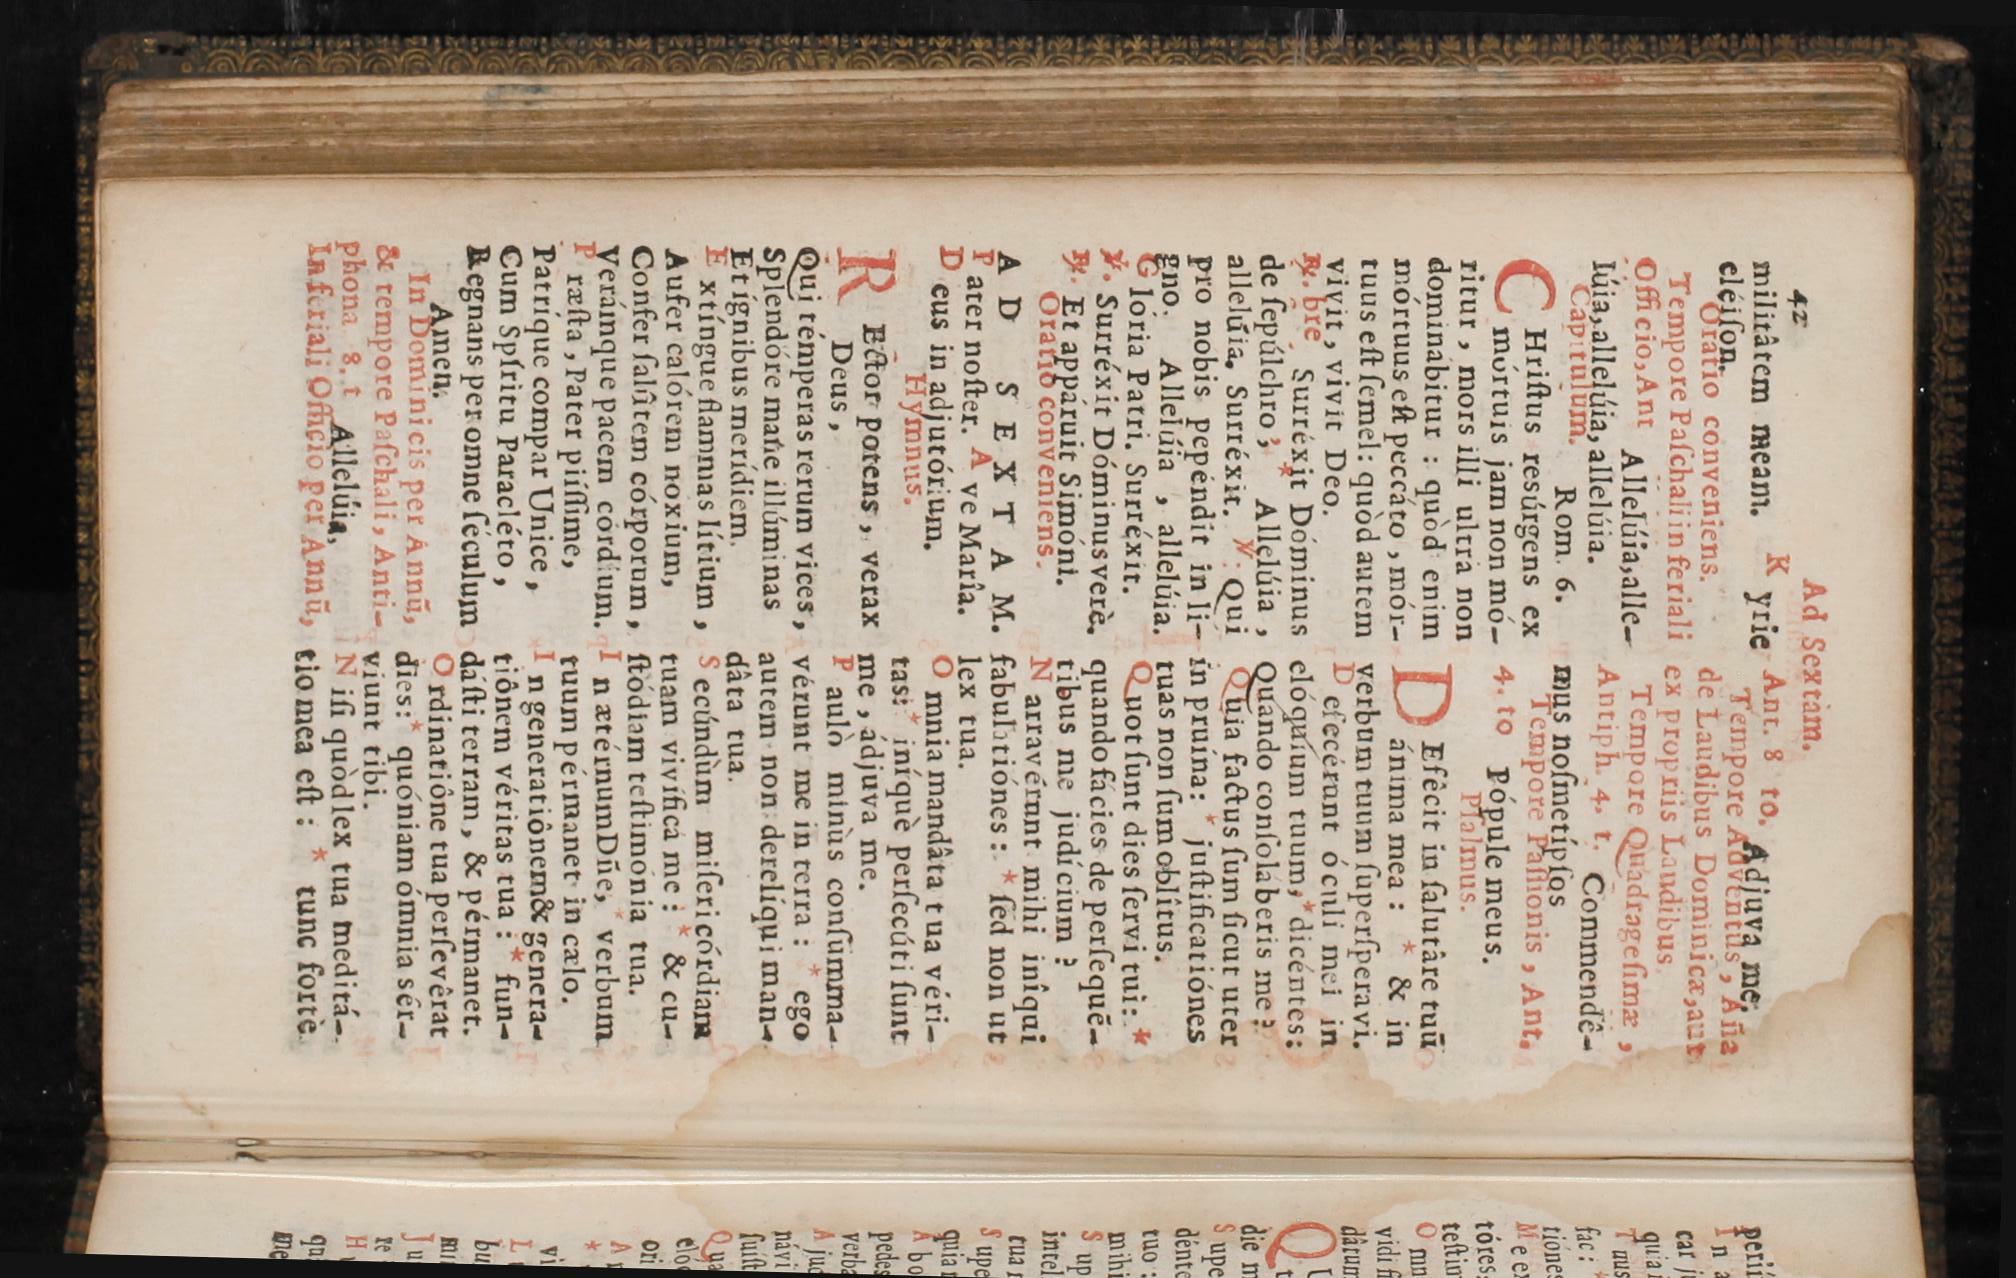 42
Ad Sextam.
militâtem meam. K yrie
eléiſon.
Oratio conveniens.
Tempore Paſchali in feriali
Officio, Ant Allelúia, alle-
lúia, allelúia, allelúia.
Capitulum. Rom. 6.
C Hriſtus resúrgens ex
mórtuis jam non mó-
ritur, mors illi ultrà non
dominabitur: quòd enim
mórtuus eſt peccáto, mór-
tuus eſt ſemel: quòd autem
vivit, vivit Deo.
℟. bre. Surréxit Dóminus
de ſepúlchro, * Allelúia,
allelúia. Surréxit. ℣. Qui
pro nobis pepéndit in li-
gno. Allelúia, allelúia.
G loria Patri. Surréxit.
℣. Surréxit Dóminus verè.
℟. Et appáruit Simóni.
Oratio conveniens.
AD SEXTAM.
P ater noſter. A ve Marîa.
D eus in adjutórium.
Hymnus.
R Ector potens, verax
Deus,
Qui témperas rerum vices,
Splendóre mane illúminas
Et ígnibus merídiem.
E xtíngue flammas lítium,
Aufer calórem noxium,
Confer ſalûtem córporum,
Veráinque pacem córdium.
P ræſta, Pater piíſſime,
Patríque compar Unice,
Cum Spſritu Paracléto,
Regnans per omne ſéculum
Amen.
In Dominicis per Annũ,
& tempore Paſchali, Anti-
phona 8. t Allelúia,
In feriali Officio per Annũ,
Ant. 8 to. Adjuva me.
Tempore Adventus, Aña
de Laudibus Dominicæ, aut
ex propriis Laudibus
Tempore Quadrageſimæ,
Antiph. 4. t. Commendê-
mus noſmetípſos
Tempore Paſſionis, Ant.
4. to Pópule meus.
Pſalmus.
D Efêcit in ſalutâre tuũ
ánima mea: * & in
verbum tuum ſuperſperavi.
D efecérunt óculi mei in
elóquium tuum, * dicéntes:
Quando conſolaberis me?
Q uia factus ſum ſicut uter
in pruína: * juſtificatiónes
tuas non ſum oblîtus.
Q uot ſunt dies ſervi tui: *
quando fácies de perſequẽ-
tibus me judícium?
N arravérunt mihi inîqui
fabulatiónes: * ſed non ut
lex tua.
O mnia mandâta tua véri-
tas: * iníquè perſecúti ſunt
me, ádjuva me.
P aulò minùs conſumma-
vérunt me in terra: * ego
autem non derelíqui man-
dâta tua.
S ecúndùm miſericórdiam
tuam vivífica me: * & cu-
ſtódiam teſtimónia tua.
I n ætérnum Dñe, * verbum
tuum pérmanet in cælo.
I n generatiônem & genera-
tiônem véritas tua: * fun-
dáſti terram, & pérmanet.
O rdinatiône tua perſevêrat
dies: * quóniam ómnia sér-
viunt tibi.
N iſi quòd lex tua meditá-
tio mea eſt: * tunc fortè